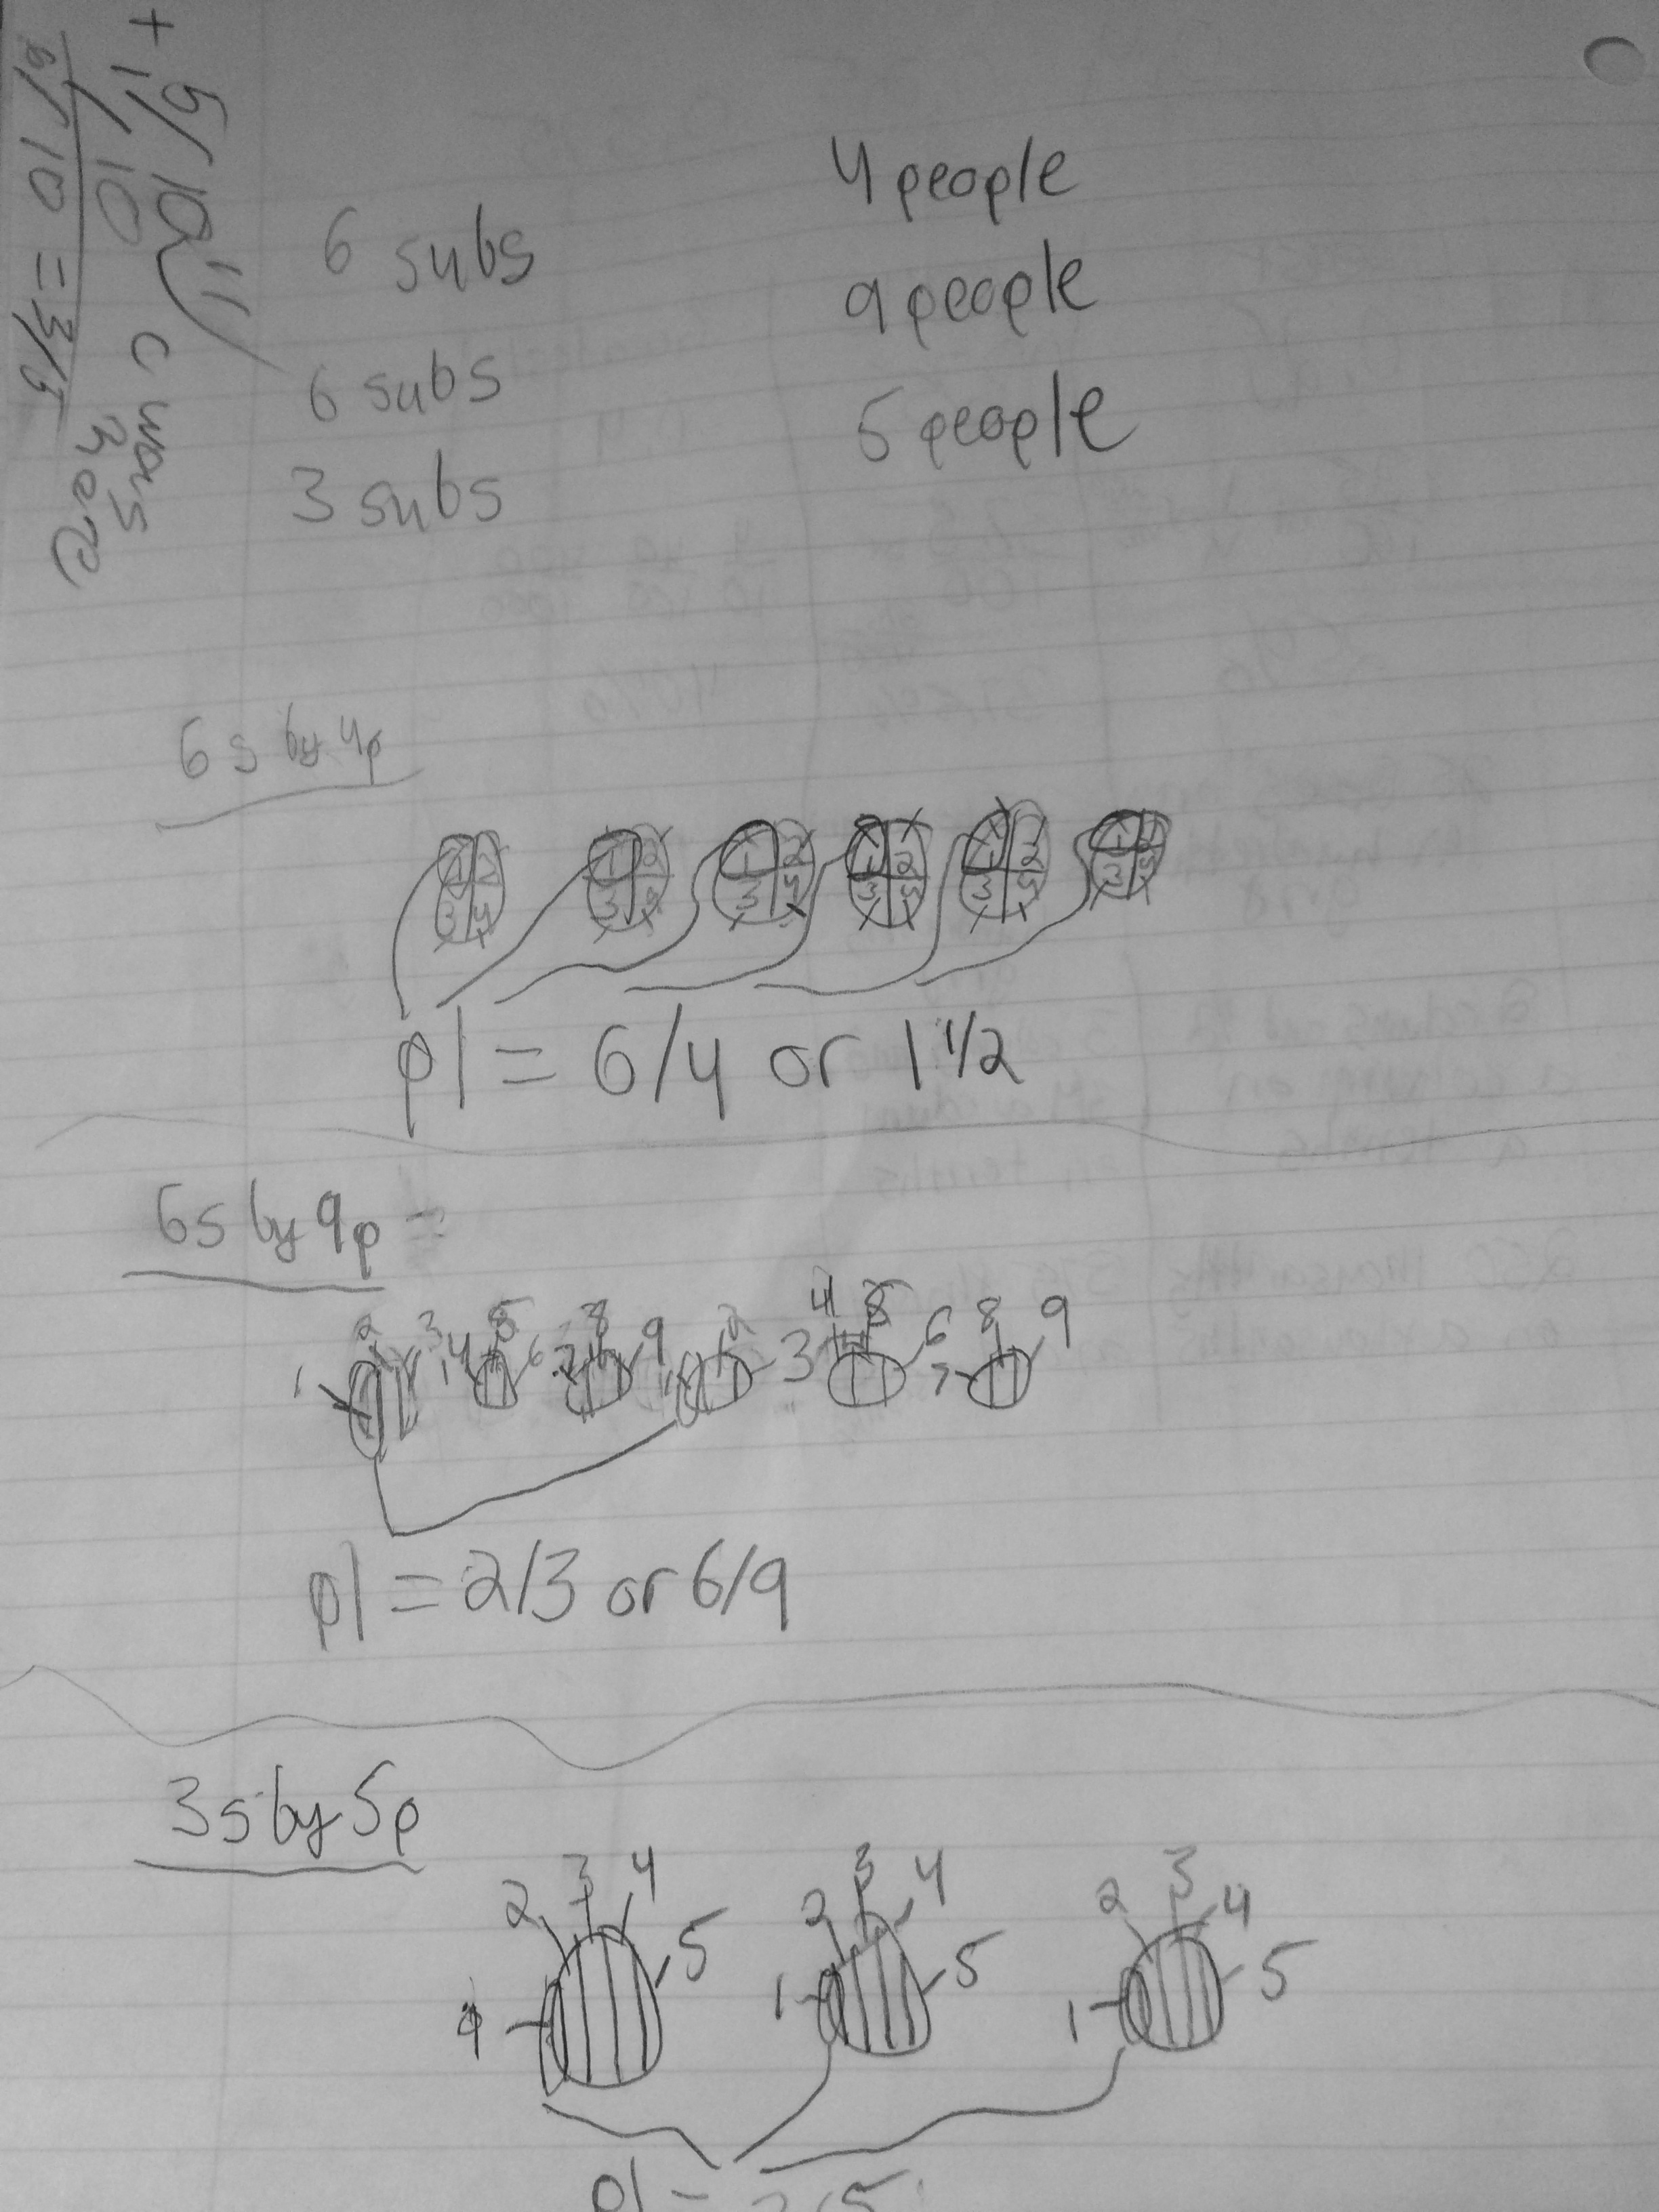 + 5/10
1/10
6/10 = 3/5
C was
here
4 people
6 subs
9 people
6 subs
5 people
3 subs
6s by 4p
1 2 1 2 1 2 1 2 1 2 1
3 4 3 4 3 4 3 4 3 4 3 4
p1 = 6/4 or 1 1/2
6s by 9p =
1 2 3 4 5 6 7 8 9 1 2 3 4 5 6 7 8 9
p1 = 2/3 or 6/9
3s by 5p
2 3 4 2 3 4 2 3 4
5 1 5 1 5
p1 = 3/5